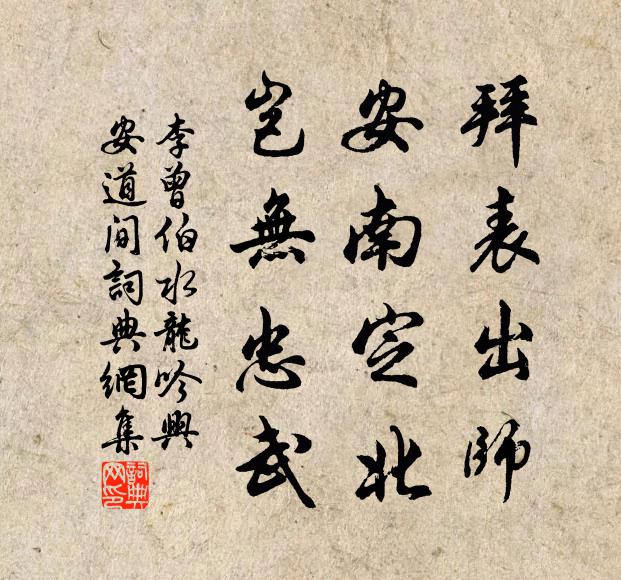 拜表出師
安南定北
豈無忠武
李曾伯水龍吟興
安道间詞典網集
詞典网印